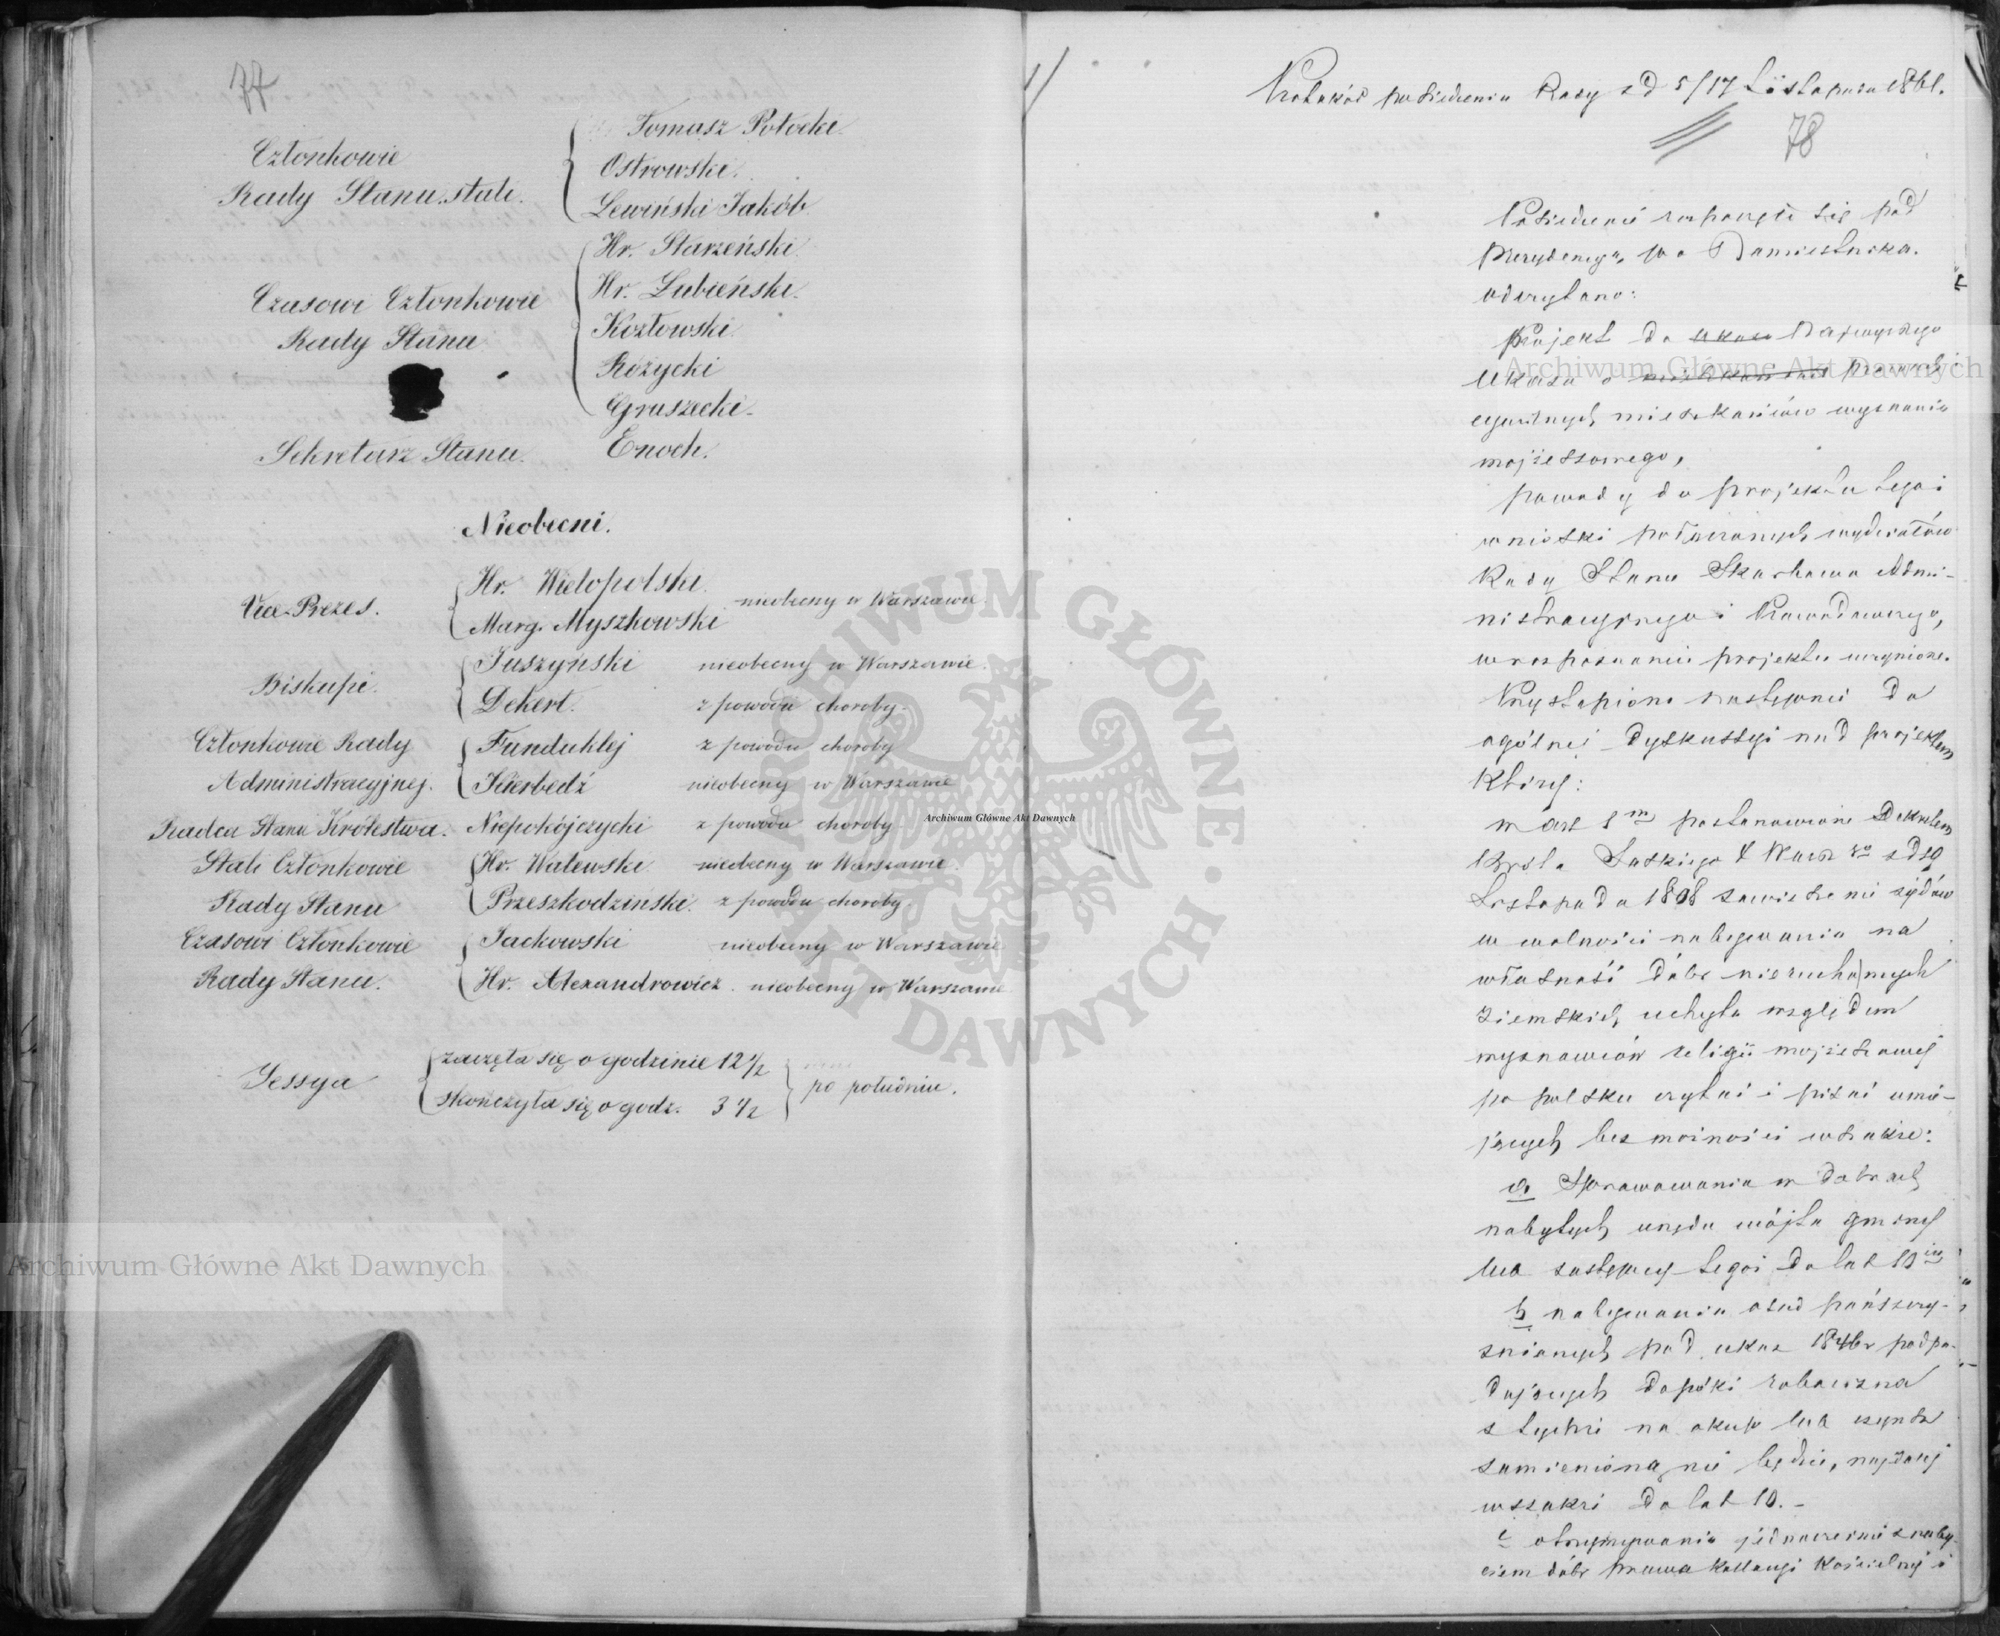 77
Członkowie
Rady Stanu stali.
Tomasz Potocki
Ostrowski.
Lewiński Jakób
Czasowi Członkowie
Rady Stanu
Hr. Starzeński
Hr. Łubieński.
Kozłowski
Różycki
Gruszecki.
Sekretarz Stanu.
Enoch.
Nieobecni.
Vice-Prezes.
Hr. Wielopolski
Marg. Myszkowski
nieobecny w Warszawie.
Biskupi.
Juszyński nieobecny w Warszawie.
Dekert. z powodu choroby.
Członkowie Rady
Administracyjnej.
Funduklej z powodu choroby
Kierbedź nieobecny w Warszawie
Radca Stanu Królestwa. Niepokójczycki z powodu choroby
Stali Członkowie
Rady Stanu
Hr. Walewski nieobecny w Warszawie.
Przeszkodziński. z powodu choroby.
Czasowi Członkowie
Rady Stanu.
Jackowski nieobecny w Warszawie
Hr. Alexandrowicz. nieobecny w Warszawie
Sessya
zaczęła się o godzinie 12 1/2
skończyła się o godz. 3 1/2
po południu.
Protokół posiedzenia Rady z d 5/17 Listopada 1861.
78
Posiedzenie rozpoczęte się pod
Prezydencyą Namiestnika.
odczytano:
Projekt do Najwyższego
Ukazu o
cywilnych mieszkańców wyznania
mojżeszowego,
powody do projektu tego i
wnioski połączonych wydziałów
Rady Stanu Skarbowo Admi-
nistracyjnego i Prawodawczego,
w rozpoznaniu projektu uczynione.
Przystąpiono następnie do
ogólnej dyskussyi nad projektem
który:
w art 1m postanowione Dekretem
Króla Saskiego X Warsz z d 19
Listopada 1808 zawieszenie żydów
w wolności nabywania na
własność dóbr nieruchomych
ziemskich uchyla względem
wyznawców religii mojżeszowej
po polsku czytać i pisać umie-
jących bez możności wszakże:
a. Sprawowania w dobrach
nabytych urzędu wójta gminy
lub zastępcy tegoż do lat 10
b nabywania osad pańszczy-
źnianych pod ukaz 1846r podpa-
dających dopóki robocizna
z tychże na okup lub czynsz
zamienioną nie będzie, najdalej
wszakże do lat 10. -
c otrzymywania jednocześnie z naby-
ciem dóbr prawa kollacyi Kościelnej i
Archiwum Główne Akt Dawnych
Archiwum Główne Akt Dawnych
Archiwum Główne Akt Dawnych
ARCHIWUM GŁÓWNE AKT DAWNYCH